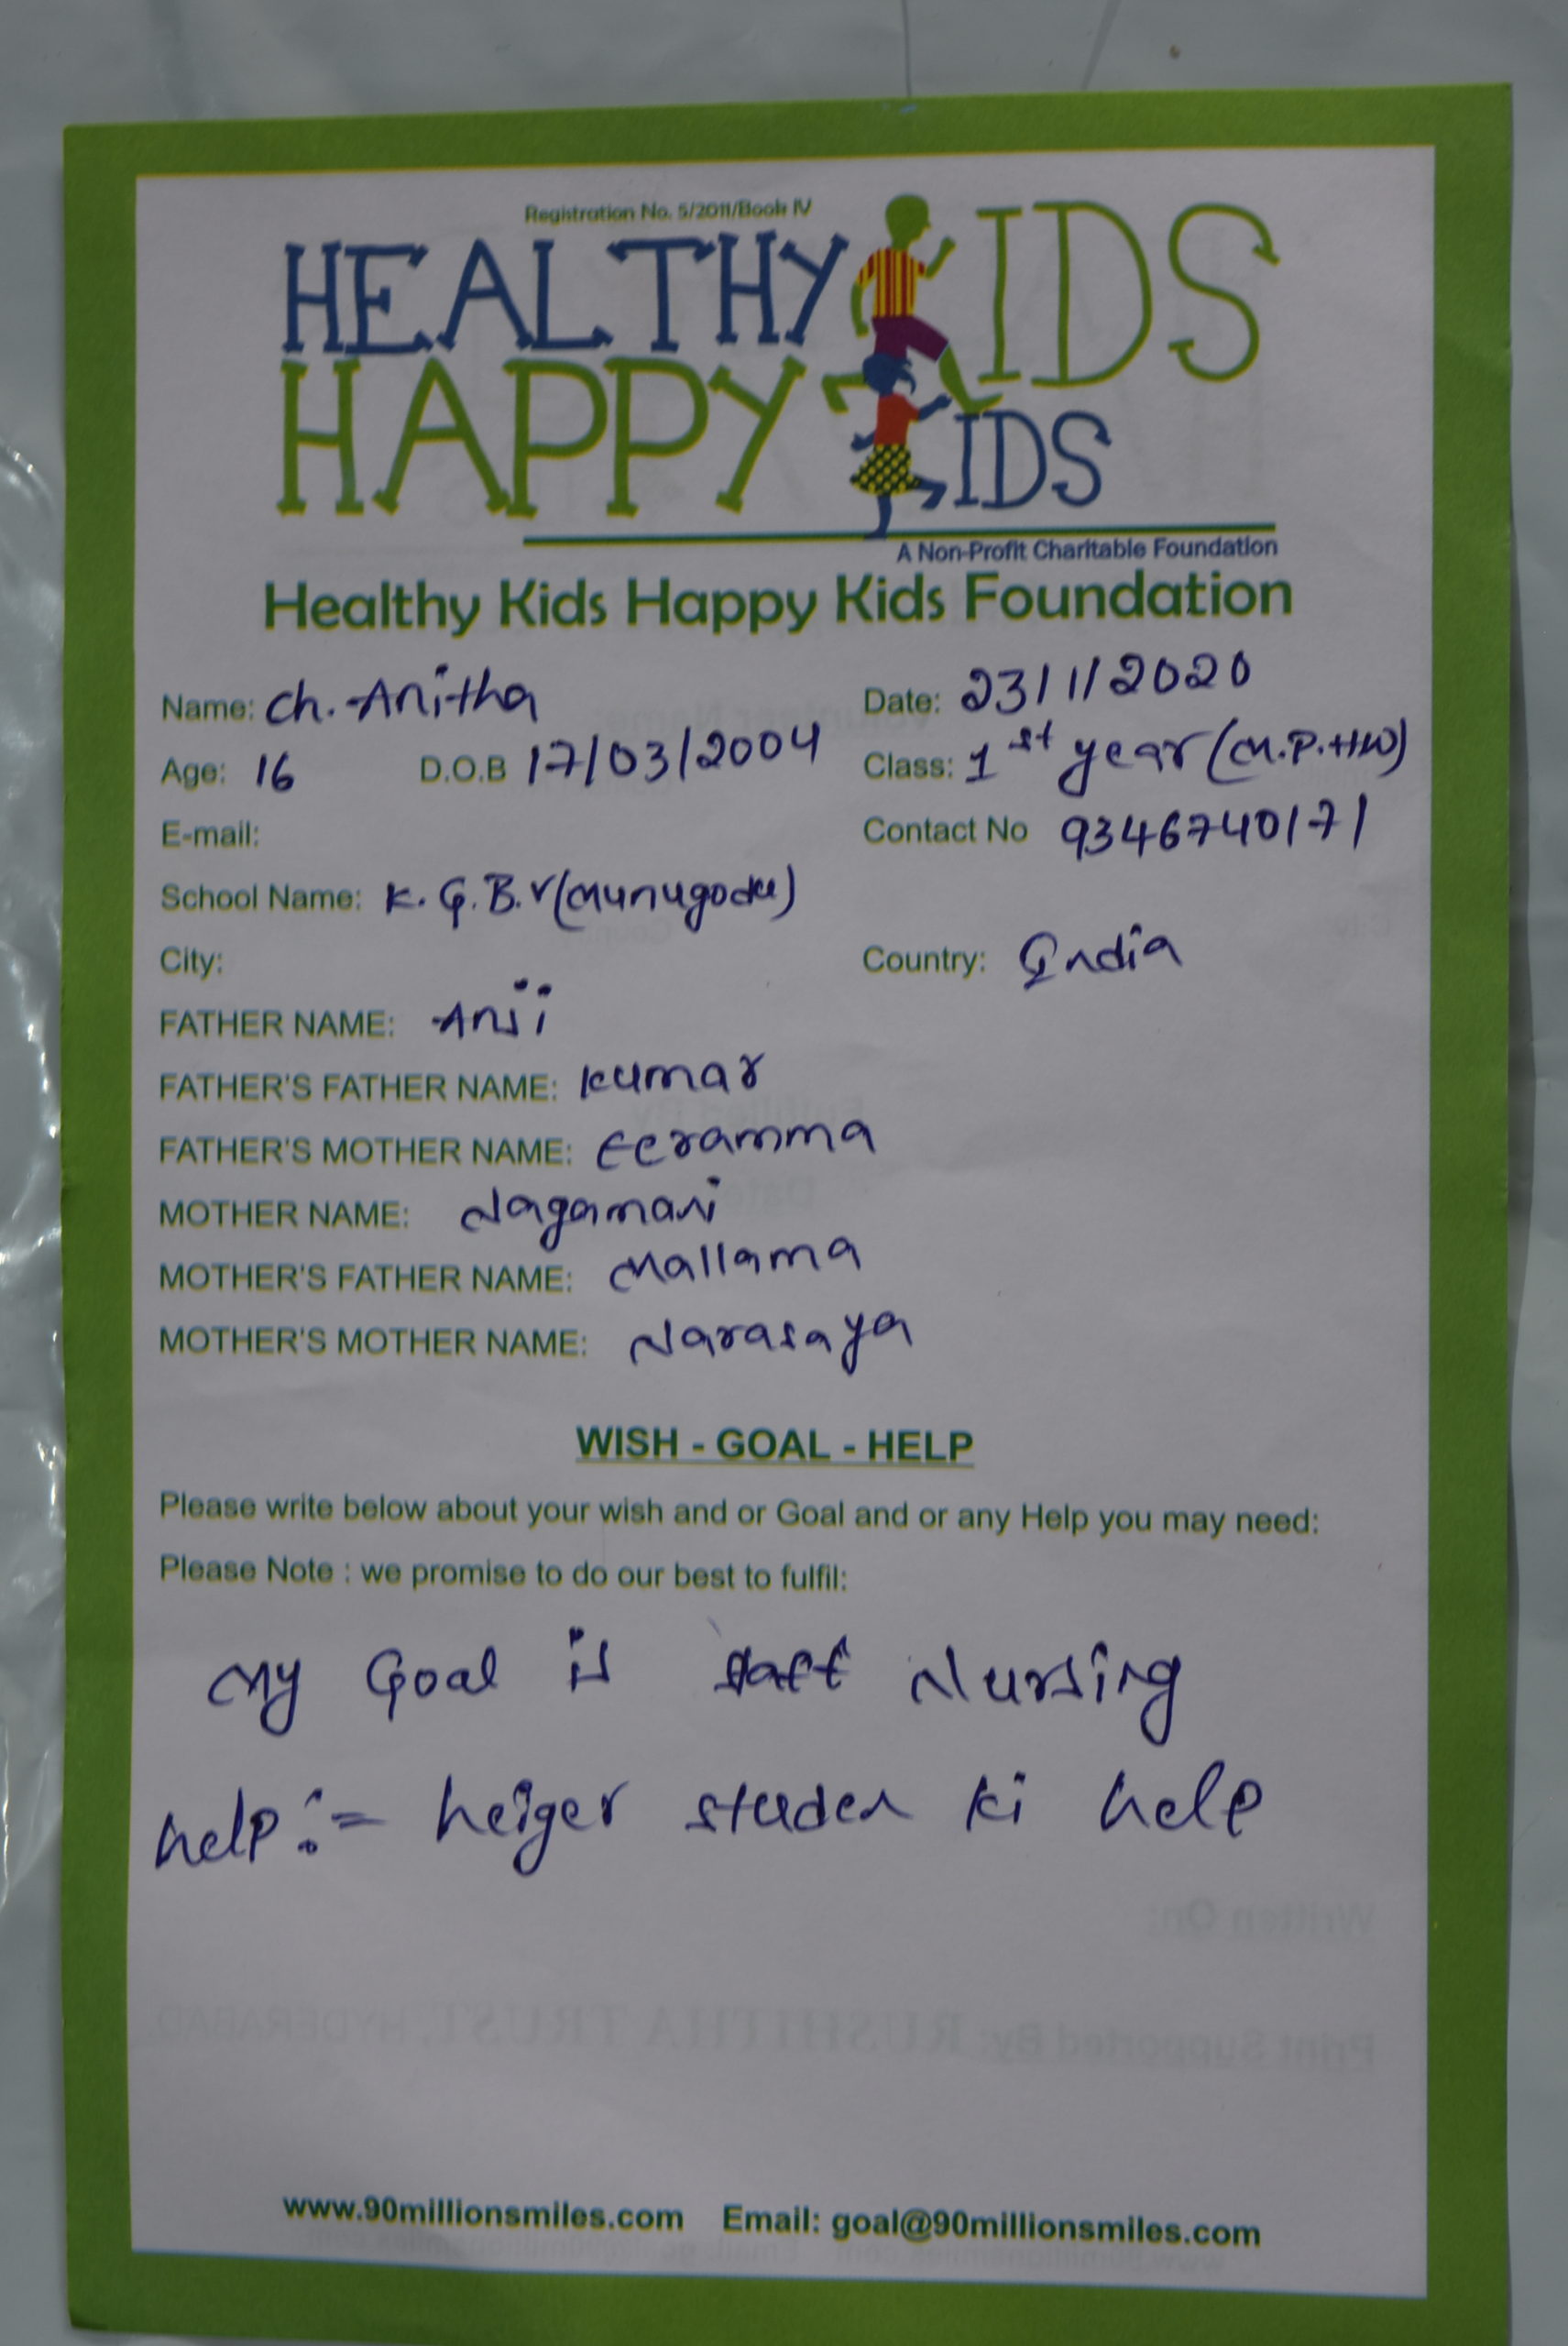 Registration No. 5/2011/Book IV
HEALTHY KIDS
HAPPY KIDS
A Non-Profit Charitable Foundation
Healthy Kids Happy Kids Foundation
Name: Ch. Anitha Date: 23/1/2020
Age: 16 D.O.B 17/03/2004 Class: 1st year (M.P.HW)
E-mail: Contact No 9346740171
School Name: K.G.B.V (Munugode)
City: Country: India
FATHER NAME: Anji
FATHER'S FATHER NAME: Kumar
FATHER'S MOTHER NAME: Eeramma
MOTHER NAME: Nagamani
MOTHER'S FATHER NAME: Mallama
MOTHER'S MOTHER NAME: Narasaya
WISH - GOAL - HELP
Please write below about your wish and or Goal and or any Help you may need:
Please Note : we promise to do our best to fulfil:
My Goal is staff Nursing
help :- heiger studen ki help
www.90millionsmiles.com Email: goal@90millionsmiles.com